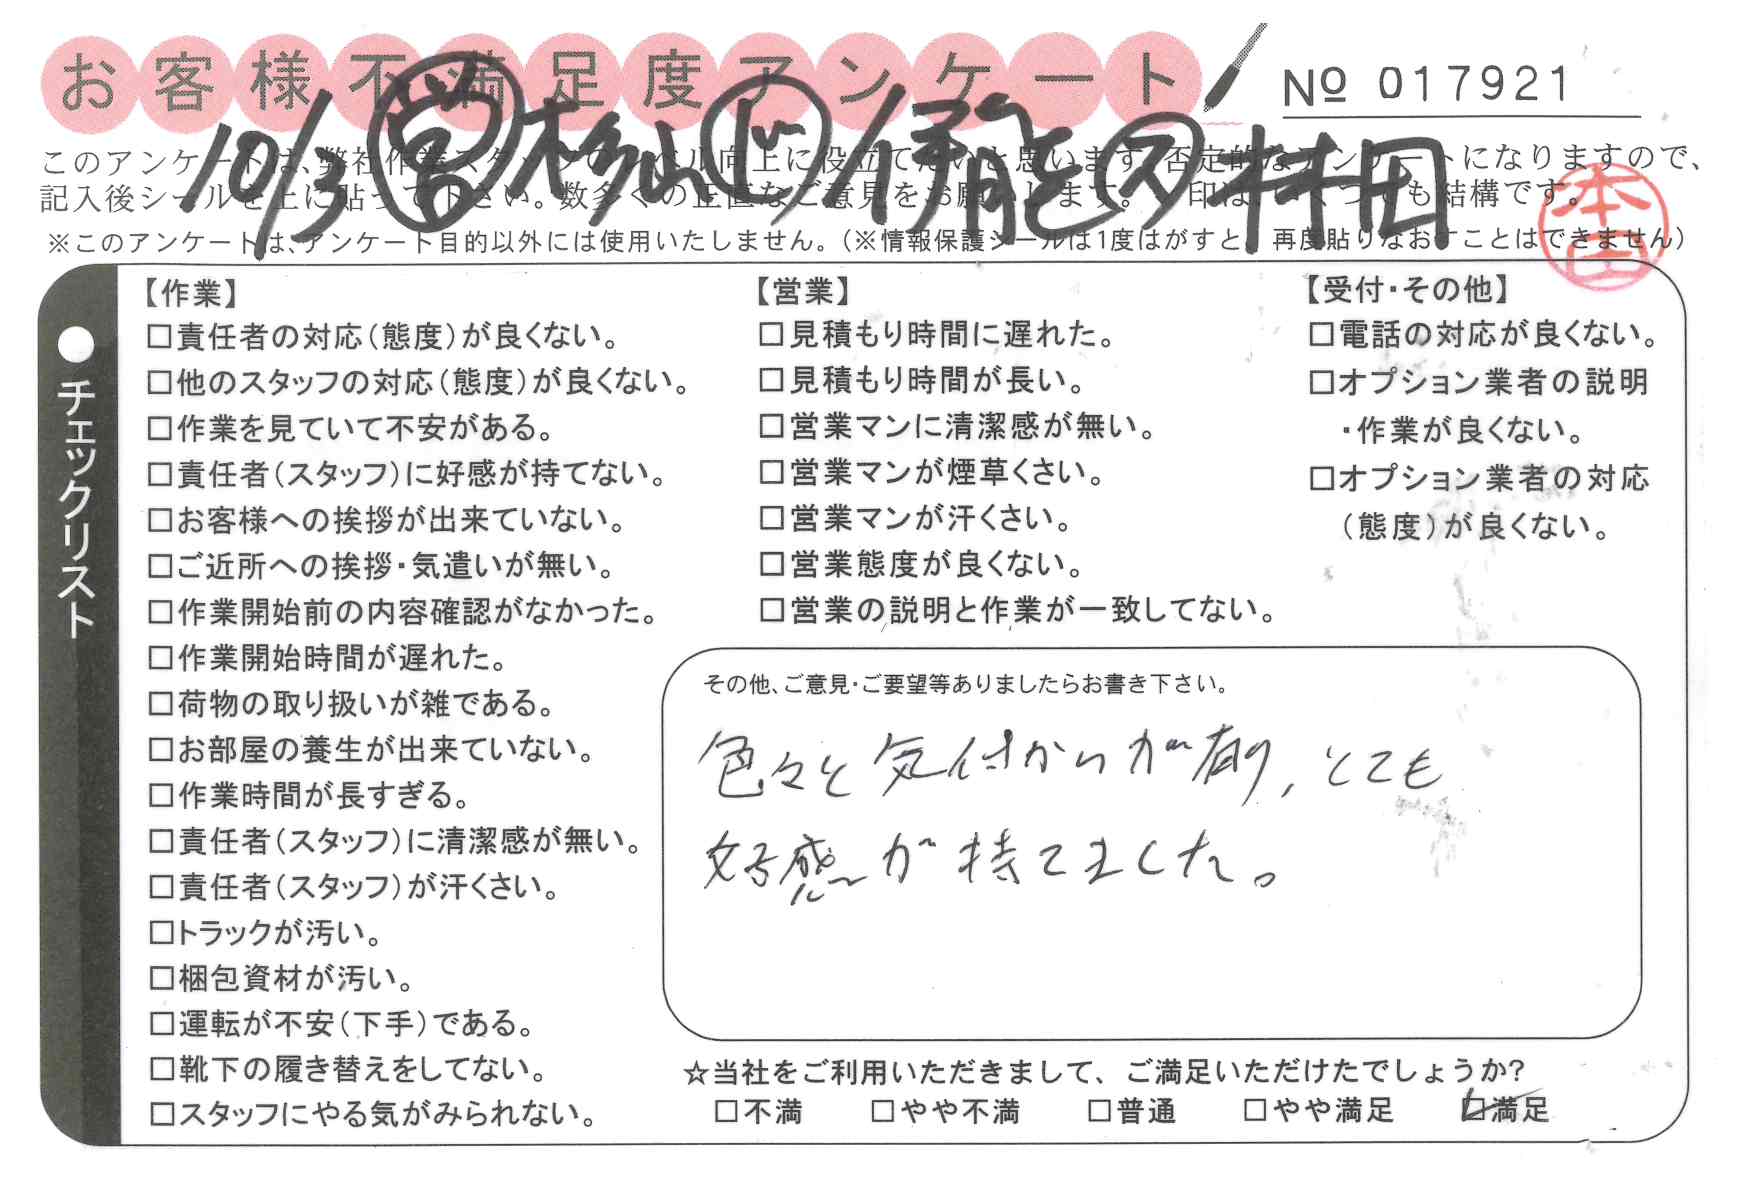 お客様不満足度アンケート
№ 017921
10/3 営 杉山 ジ 伊能 ス 村田
このアンケートは、弊社作業スタッフのレベル向上に役立てたいと思います。否定的なアンケートになりますので、
記入後シールを上に貼って下さい。数多くの正直なご意見をお願いします。✓印は、いくつでも結構です。
本田
※このアンケートは、アンケート目的以外には使用いたしません。(※情報保護シールは1度はがすと、再度貼りなおすことはできません)
●チェックリスト
【作業】
□責任者の対応(態度)が良くない。
□他のスタッフの対応(態度)が良くない。
□作業を見ていて不安がある。
□責任者(スタッフ)に好感が持てない。
□お客様への挨拶が出来ていない。
□ご近所への挨拶・気遣いが無い。
□作業開始前の内容確認がなかった。
□作業開始時間が遅れた。
□荷物の取り扱いが雑である。
□お部屋の養生が出来ていない。
□作業時間が長すぎる。
□責任者(スタッフ)に清潔感が無い。
□責任者(スタッフ)が汗くさい。
□トラックが汚い。
□梱包資材が汚い。
□運転が不安(下手)である。
□靴下の履き替えをしてない。
□スタッフにやる気がみられない。
【営業】
□見積もり時間に遅れた。
□見積もり時間が長い。
□営業マンに清潔感が無い。
□営業マンが煙草くさい。
□営業マンが汗くさい。
□営業態度が良くない。
□営業の説明と作業が一致してない。
【受付・その他】
□電話の対応が良くない。
□オプション業者の説明
・作業が良くない。
□オプション業者の対応
(態度)が良くない。
その他、ご意見・ご要望等ありましたらお書き下さい。
色々と気付かいが有り,とても
好感が持てました。
☆当社をご利用いただきまして、ご満足いただけたでしょうか?
□不満 □やや不満 □普通 □やや満足 ☑満足